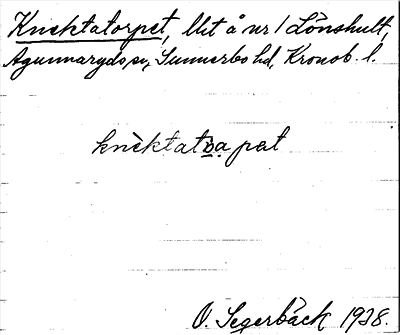 Knektatorpet, llit å nr 1 Lönshult,
Agunnaryds sn, Sunnerbo hd, Kronob. l.
knèktat pat
O. Segerbäck 1928.